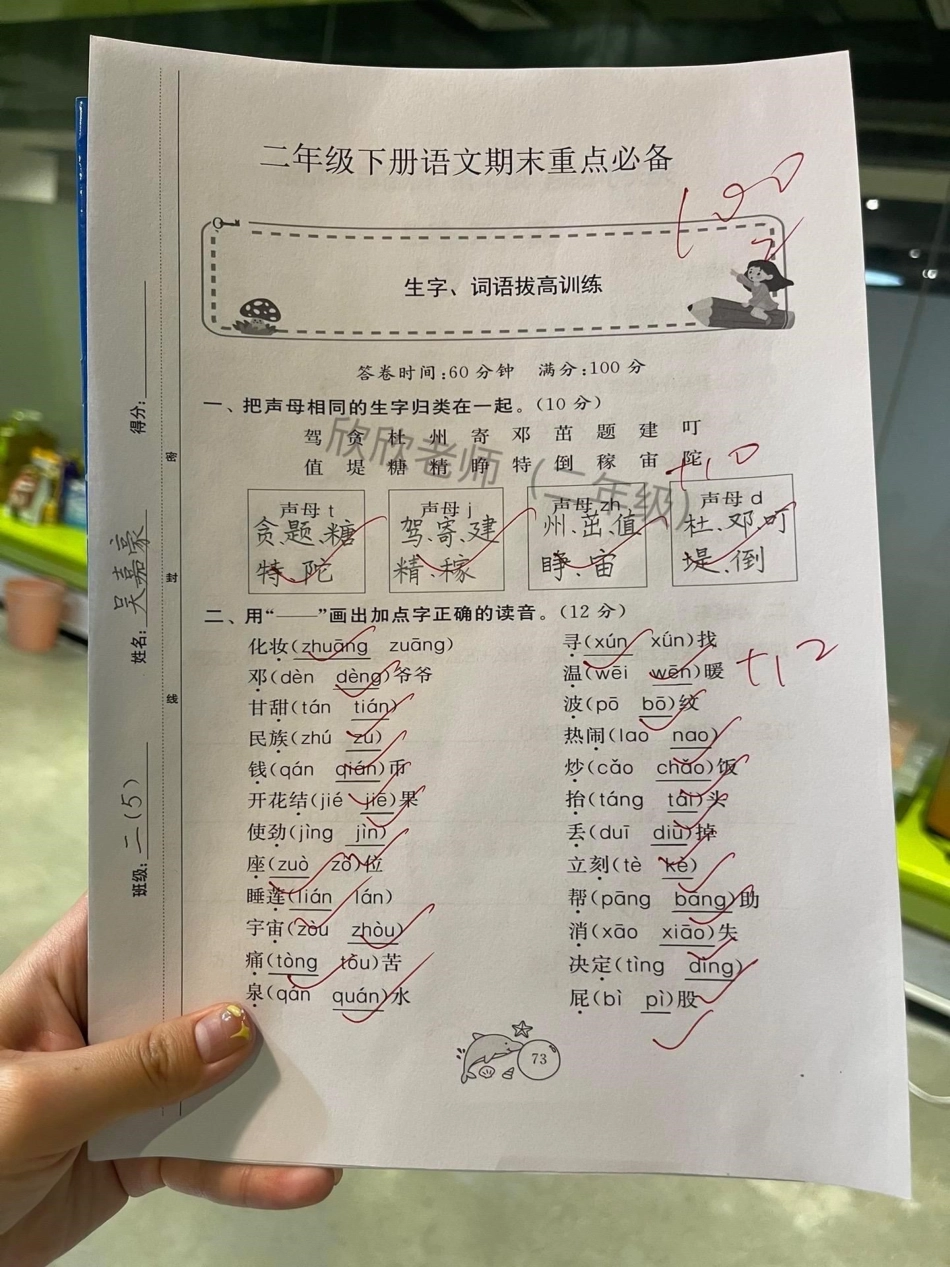 二年级下册语文期末重点必备
100
生字、词语拔高训练
答卷时间:60分钟 满分:100分
一、把声母相同的生字归类在一起。(10分)
驾 贪 杜 州 寄 邓 茁 题 建 叮
值 堤 糖 精 睁 特 倒 稼 宙 陀
+10
欣欣老师(二年级)
声母 t 声母 j 声母 zh 声母 d
贪、题、糖 驾、寄、建 州、茁、值 杜、邓、叮
特、陀 精、稼 睁、宙 堤、倒
二、用“——”画出加点字正确的读音。(12分)
+12
化妆(zhuāng zuāng) 寻(xún xǘn)找
邓(dèn dèng)爷爷 温(wēi wēn)暖
甘甜(tán tián) 波(pō bō)纹
民族(zhú zú) 热闹(lao nao)
钱(qán qián)币 炒(cǎo chǎo)饭
开花结(jié jiē)果 抬(táng tái)头
使劲(jìng jìn) 丢(duī diū)掉
座(zuò zǒ)位 立刻(tè kè)
睡莲(lián lán) 帮(pāng bāng)助
宇宙(zòu zhòu) 消(xāo xiāo)失
痛(tòng tòu)苦 决定(tìng dìng)
泉(qán quán)水 屁(bì pì)股
73
得分:
姓名: 吴嘉豪
班级: 二(5)
密
封
线